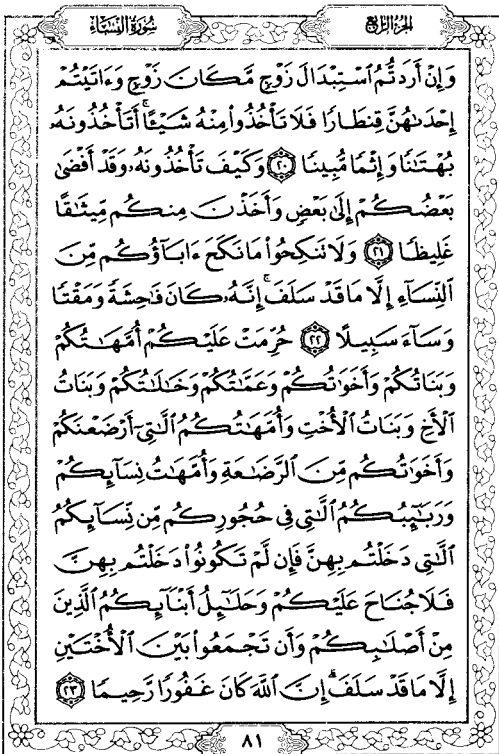 سُورَةُ النِّسَاءِ
الجزء الرابع
وَإِنْ أَرَدتُّمُ ٱسْتِبْدَالَ زَوْجٍ مَّكَانَ زَوْجٍ وَءَاتَيْتُمْ
إِحْدَىٰهُنَّ قِنطَارًا فَلَا تَأْخُذُوا۟ مِنْهُ شَيْـًٔا ۚ أَتَأْخُذُونَهُۥ
بُهْتَـٰنًا وَإِثْمًا مُّبِينًا ﴿٢٠﴾ وَكَيْفَ تَأْخُذُونَهُۥ وَقَدْ أَفْضَىٰ
بَعْضُكُمْ إِلَىٰ بَعْضٍ وَأَخَذْنَ مِنكُم مِّيثَـٰقًا
غَلِيظًا ﴿٢١﴾ وَلَا تَنكِحُوا۟ مَا نَكَحَ ءَابَآؤُكُم مِّنَ
ٱلنِّسَآءِ إِلَّا مَا قَدْ سَلَفَ ۚ إِنَّهُۥ كَانَ فَـٰحِشَةً وَمَقْتًا
وَسَآءَ سَبِيلًا ﴿٢٢﴾ حُرِّمَتْ عَلَيْكُمْ أُمَّهَـٰتُكُمْ
وَبَنَاتُكُمْ وَأَخَوَٰتُكُمْ وَعَمَّـٰتُكُمْ وَخَـٰلَـٰتُكُمْ وَبَنَاتُ
ٱلْأَخِ وَبَنَاتُ ٱلْأُخْتِ وَأُمَّهَـٰتُكُمُ ٱلَّـٰتِىٓ أَرْضَعْنَكُمْ
وَأَخَوَٰتُكُم مِّنَ ٱلرَّضَـٰعَةِ وَأُمَّهَـٰتُ نِسَآئِكُمْ
وَرَبَـٰٓئِبُكُمُ ٱلَّـٰتِى فِى حُجُورِكُم مِّن نِّسَآئِكُمُ
ٱلَّـٰتِى دَخَلْتُم بِهِنَّ فَإِن لَّمْ تَكُونُوا۟ دَخَلْتُم بِهِنَّ
فَلَا جُنَاحَ عَلَيْكُمْ وَحَلَـٰٓئِلُ أَبْنَآئِكُمُ ٱلَّذِينَ
مِنْ أَصْلَـٰبِكُمْ وَأَن تَجْمَعُوا۟ بَيْنَ ٱلْأُخْتَيْنِ
إِلَّا مَا قَدْ سَلَفَ ۗ إِنَّ ٱللَّهَ كَانَ غَفُورًا رَّحِيمًا ﴿٢٣﴾
٨١